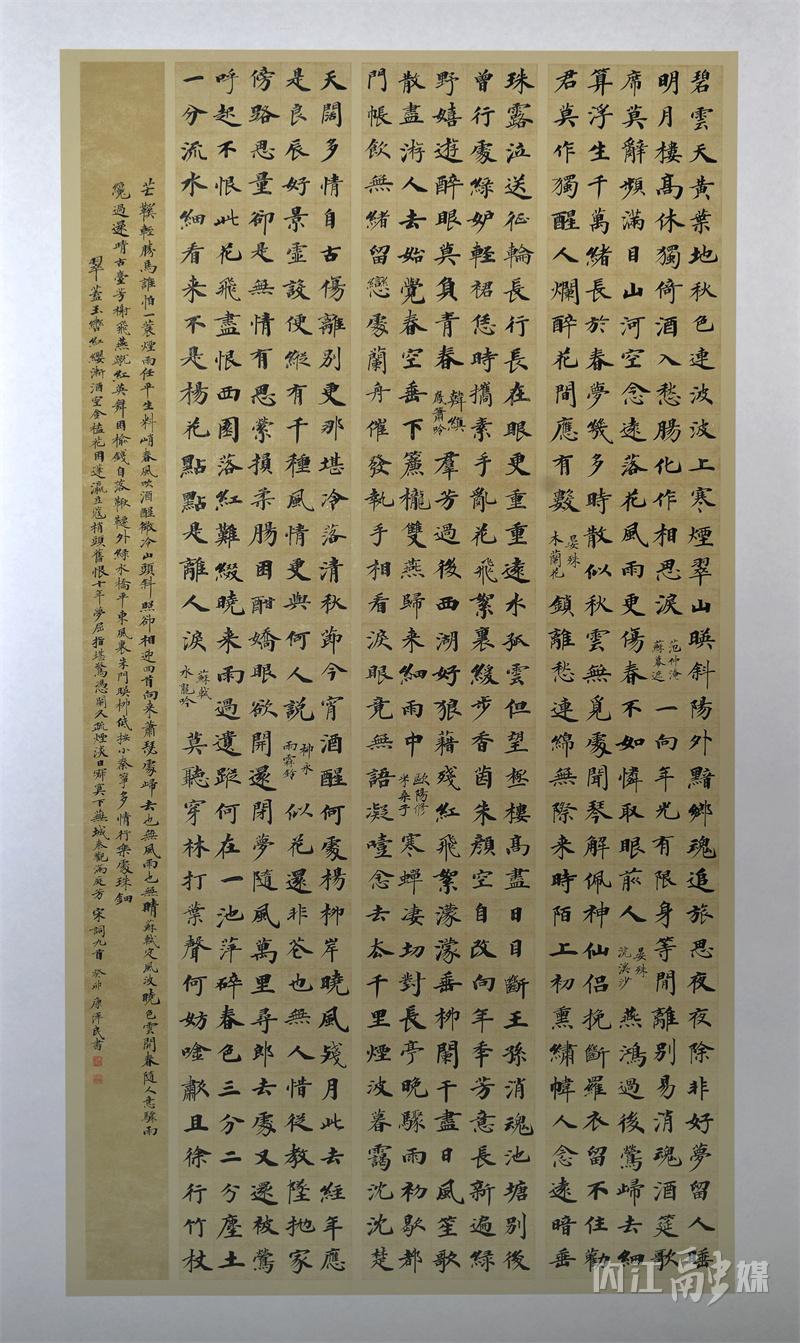 碧雲天黃葉地秋色連波波上寒煙翠山暎斜陽外黯鄉魂追旅思夜夜除非好夢留人睡
明月樓高休獨倚酒入愁腸化作相思淚 范仲淹蘇幕遮 一向年光有限身等閒離別易消魂酒筵歌
席莫辭頻滿目山河空念遠落花風雨更傷春不如憐取眼前人 晏殊浣溪沙 燕鴻過後鶯歸去細
算浮生千萬緒長於春夢幾多時散似秋雲無覓處聞琴解佩神仙侶挽斷羅衣留不住勸
君莫作獨醒人爛醉花間應有數 晏殊木蘭花 鎖離愁連綿無際來時陌上初熏繡幃人念遠暗垂
珠露泣送征輪長行長在眼更重重遠水孤雲但望極樓高盡日目斷王孫消魂池塘別後
曾行處綠妒輕裙恁時攜素手亂花飛絮裏緩步香茵朱顏空自改向年年芳意長新遍綠
野嬉遊醉眼莫負青春 韓縝鳳簫吟 羣芳過後西湖好狼藉殘紅飛絮濛濛垂柳闌干盡日風笙歌
散盡游人去始覺春空垂下簾櫳雙燕歸來細雨中 歐陽修采桑子 寒蟬淒切對長亭晚驟雨初歇都
門帳飲無緒留戀處蘭舟催發執手相看淚眼竟無語凝噎念去去千里煙波暮靄沈沈楚
天闊多情自古傷離別更那堪冷落清秋節今宵酒醒何處楊柳岸曉風殘月此去經年應
是良辰好景虛設便縱有千種風情更與何人說 柳永雨霖鈴 似花還非花也無人惜從教墜拋家
傍路思量卻是無情有思縈損柔腸困酣嬌眼欲開還閉夢隨風萬里尋郎去處又還被鶯
呼起不恨此花飛盡恨西園落紅難綴曉來雨過遺蹤何在一池萍碎春色三分二分塵土
一分流水細看來不是楊花點點是離人淚 蘇軾水龍吟 莫聽穿林打葉聲何妨吟嘯且徐行竹杖
芒鞵輕勝馬誰怕一蓑煙雨任平生料峭春風吹酒醒微冷山頭斜照卻相迎回首向來蕭瑟處歸去也無風雨也無晴蘇軾定風波曉色雲開春隨人意驟雨
纔過還晴古臺芳榭飛燕蹴紅英舞困榆錢自落鞦韆外綠水橋平東風裏朱門暎柳低按小秦箏多情行樂處珠鈿
翠蓋玉轡紅纓漸酒空金榼花困蓬瀛豆蔻梢頭舊恨十年夢屈指堪驚憑闌久疏煙淡日寂寞下蕪城秦觀滿庭芳 宋詞九首 癸卯 康澤民書
内江融媒